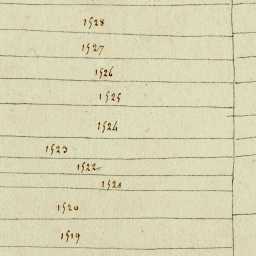 1528
1527
1526
1525
1524
1523
1522
1521
1520
1519